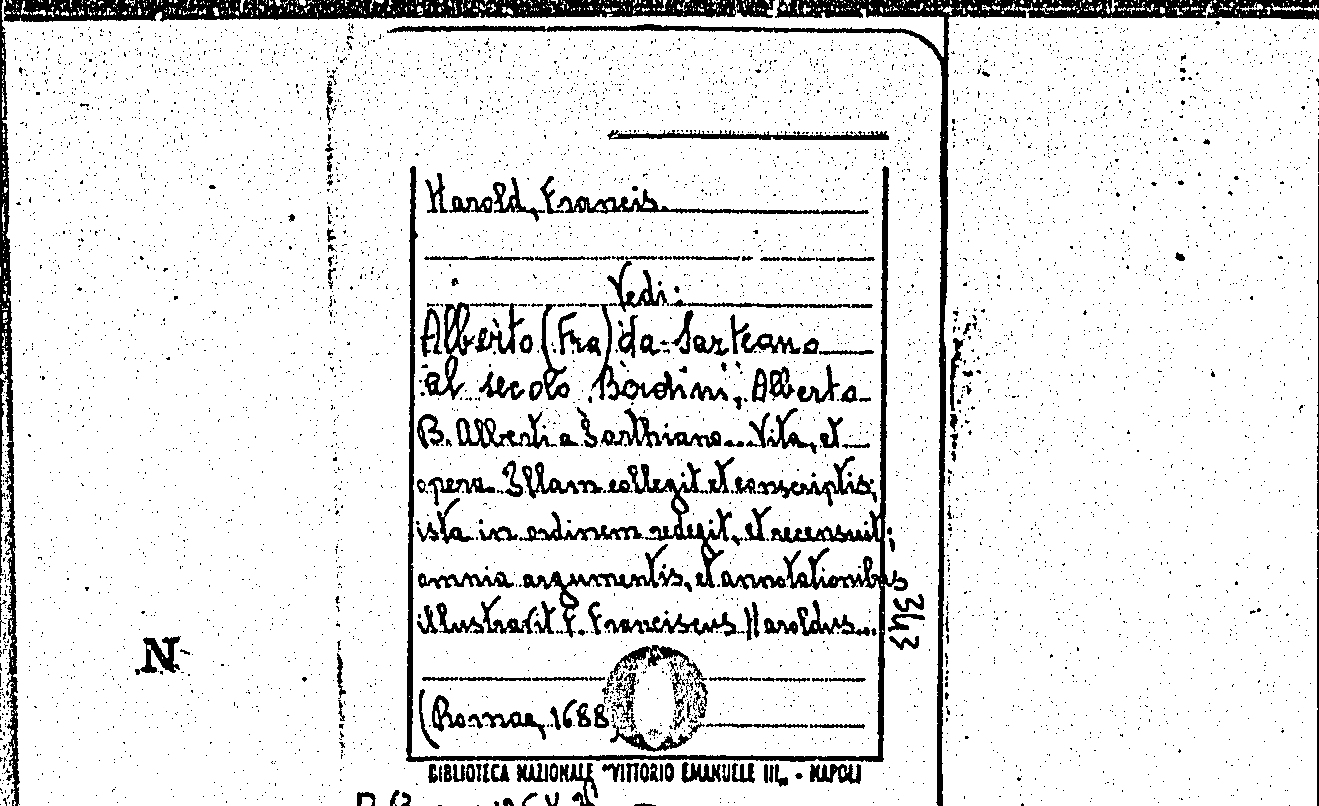 Harold, Francis.
Vedi:
Alberto (Fra) da Sarteano
al secolo Bordini, Alberto
B. Alberti a Sarthiano... Vita, et
opera Illam collegit et conscriptis;
ista in ordinem redegit, et recensuit;
omnia argumentis, et annotationibus
illustravit F. Franciscus Haroldus...
343
N
(Romae, 1688)
BIBLIOTECA NAZIONALE "VITTORIO EMANUELE III" - NAPOLI